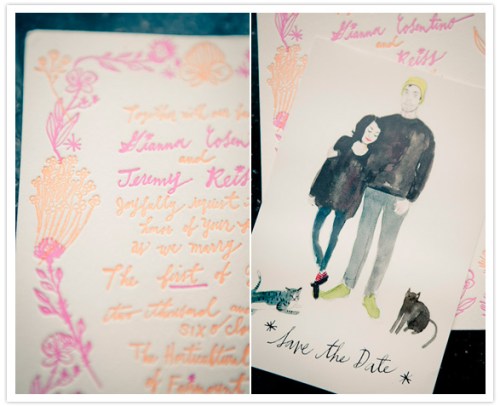 Together with our
Gianna Cosentino
and
Jeremy Reiss
Joyfully request
hono of your
as we marry
The first of
two thousand
six o'clo
The Horticultural
of Fermont
Gianna Cosentino
and
Reiss
Save the Date